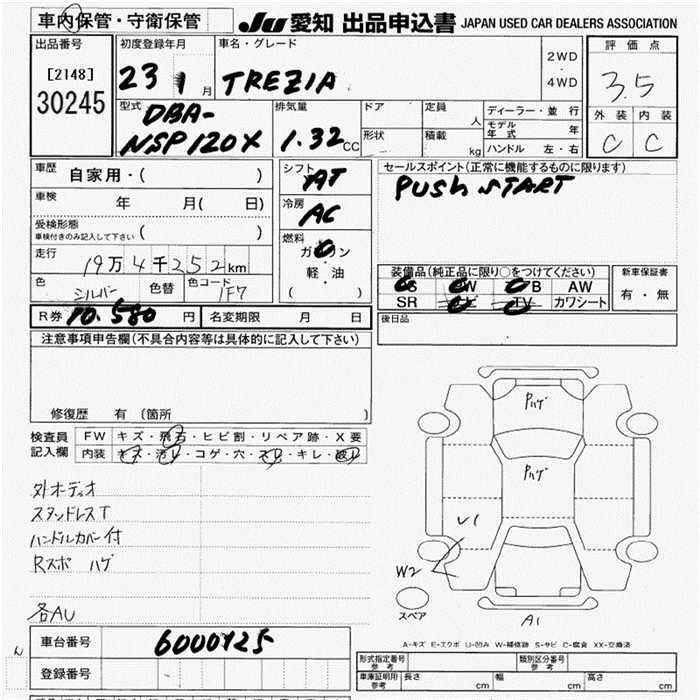 車内保管・守衛保管
JU 愛知 出品申込書 JAPAN USED CAR DEALERS ASSOCIATION
出品番号
[2148]
30245
初度登録年月
23 1 月
車名・グレード
TREZIA
2WD
・
4WD
評価点
3.5
外装 内装
C C
型式
DBA-
NSP120X
排気量
1.32 CC
ドア
形状
定員
人
積載
kg
ディーラー・並行
モデル年式 年
ハンドル 左・右
車歴
自家用・( )
車検 年 月( 日)
受検形態
車検付きのみ記入して下さい ( )
走行
19万4千252km
色 シルバー 色替 色コード 1F7
シフト
AT
冷房
AC
燃料
ガソリン
・
軽・油
( )
セールスポイント(正常に機能するものに限ります)
PUSH START
装備品(純正品に限り○をつけてください)
PS PW AB AW
SR TV カワシート
新車保証書
有・無
後日品
R券 10.580 円 名変期限 月 日
注意事項申告欄(不具合内容等は具体的に記入して下さい)
修復歴 有 (箇所 )
検査員
記入欄
FW キズ・飛石・ヒビ割・リペア跡・X要
内装 キズ・汚レ・コゲ・穴・スレ・キレ・破レ
外オーディオ
スタッドレスT
ハンドルカバー付
Rスポ ハゲ
各AU
Pハゲ
Pハゲ
U1
W2
スペア
A1
A-キズ E-エクボ U-凹み W-補修跡 S-サビ C-腐食 XX-交換済
車台番号 6000425
登録番号
形式指定番号
参考
類別区分番号
参考
車庫証明用
参考
長さ cm 幅 cm 高さ cm